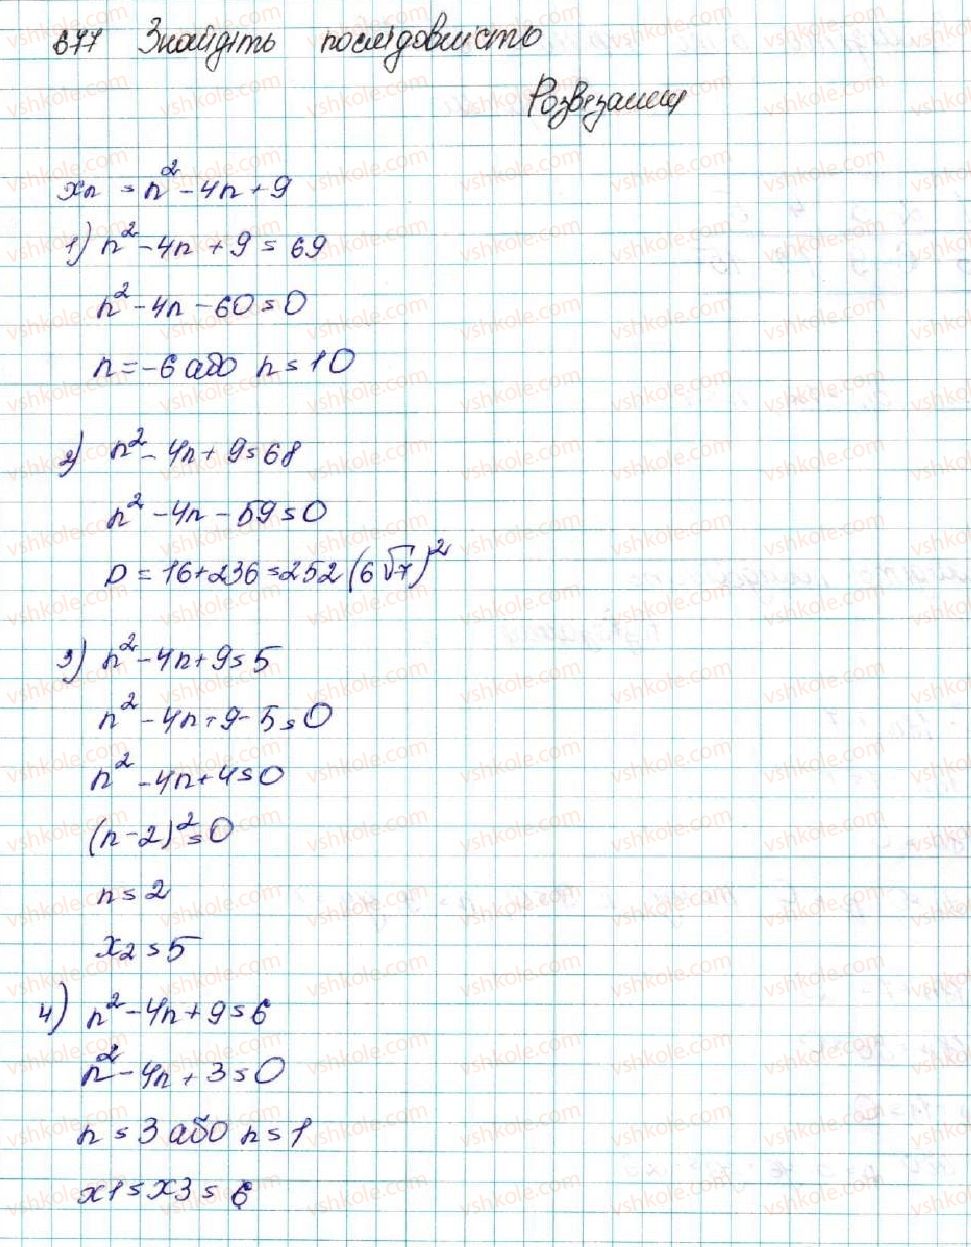 677 Знайдіть послідовність
Розв'язання
xn = n² - 4n + 9
1) n² - 4n + 9 = 69
n² - 4n - 60 = 0
n = -6 або n = 10
2) n² - 4n + 9 = 68
n² - 4n - 59 = 0
D = 16 + 236 = 252 (6√7)²
3) n² - 4n + 9 = 5
n² - 4n + 9 - 5 = 0
n² - 4n + 4 = 0
(n - 2)² = 0
n = 2
x2 = 5
4) n² - 4n + 9 = 6
n² - 4n + 3 = 0
n = 3 або n = 1
x1 = x3 = 6